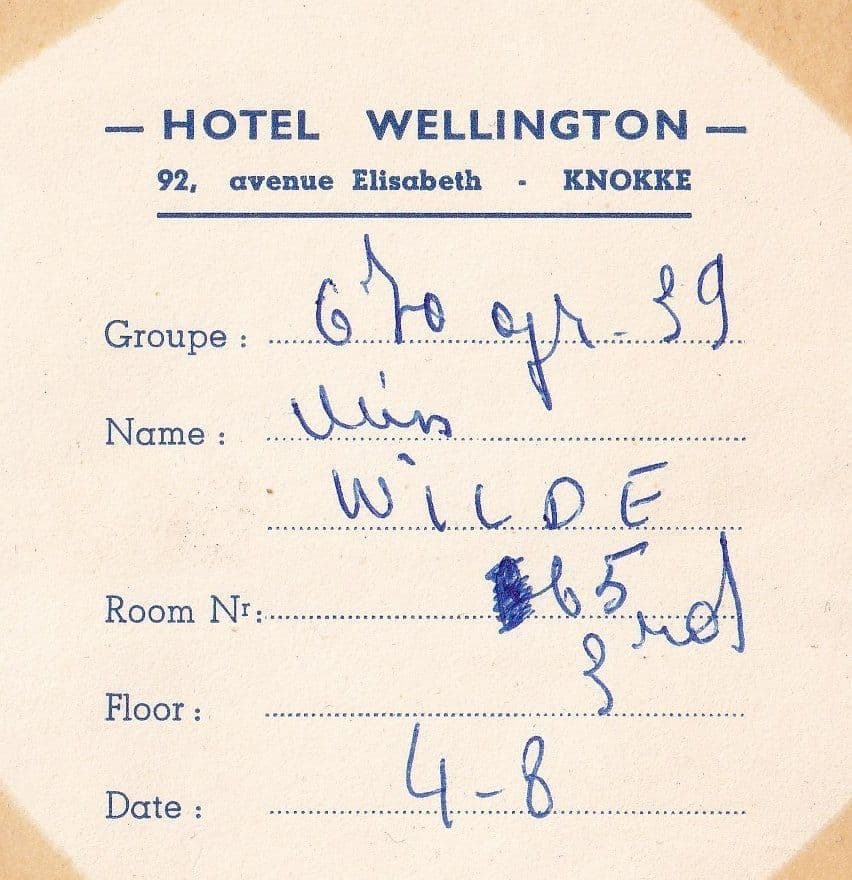 — HOTEL WELLINGTON —
92, avenue Elisabeth - KNOKKE
Groupe : 670 gr. 39
Name : Miss
WILDE
Room Nr: 65
Floor : 3rd
Date : 4-8